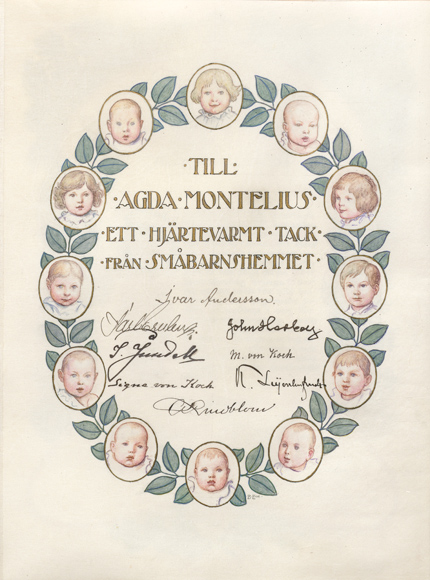 ·TILL·
·AGDA·MONTELIUS·
·ETT·HJÄRTEVARMT·TACK·
·FRÅN·SMÅBARNSHEMMET·
Ivar Andersson.
I. Jundell M. von Koch.
Signa von Koch
C Lindblom